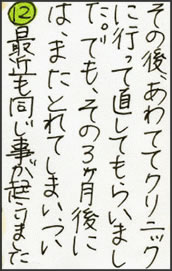 その後、あわててクリニック
に行って直してもらいまし
た。でも、その3ヶ月後に
は、またとれてしまい、つい
⑫最近も同じ事が起きました